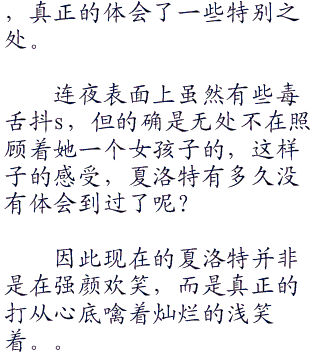 ，真正的体会了一些特别之
处。
连夜表面上虽然有些毒
舌抖s，但的确是无处不在照
顾着她一个女孩子的，这样
子的感受，夏洛特有多久没
有体会到过了呢？
因此现在的夏洛特并非
是在强颜欢笑，而是真正的
打从心底噙着灿烂的浅笑
着。。